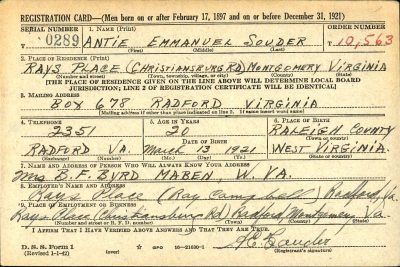 REGISTRATION CARD—(Men born on or after February 17, 1897 and on or before December 31, 1921)
SERIAL NUMBER 1. NAME (Print) ORDER NUMBER
0289 ANTIE EMMANUEL SOUDER 10,563
(First) (Middle) (Last)
2. PLACE OF RESIDENCE (Print)
RAYS PLACE (CHRISTIANSBURG RD) MONTGOMERY VIRGINIA
(Number and street) (Town, township, village, or city) (County) (State)
[THE PLACE OF RESIDENCE GIVEN ON THE LINE ABOVE WILL DETERMINE LOCAL BOARD
JURISDICTION; LINE 2 OF REGISTRATION CERTIFICATE WILL BE IDENTICAL]
3. MAILING ADDRESS
BOX 678 RADFORD VIRGINIA
[Mailing address if other than place indicated on line 2. If same insert word same]
4. TELEPHONE 5. AGE IN YEARS 6. PLACE OF BIRTH
2351 20 RALEIGH COUNTY
DATE OF BIRTH (Town or county)
RADFORD VA. March 13 1921 WEST VIRGINIA.
(Exchange) (Number) (Mo.) (Day) (Yr.) (State or country)
7. NAME AND ADDRESS OF PERSON WHO WILL ALWAYS KNOW YOUR ADDRESS
Mrs B. F. BYRD MABEN, W. VA.
8. EMPLOYER'S NAME AND ADDRESS
Rays Place (Ray Campbell) Radford, Va.
9. PLACE OF EMPLOYMENT OR BUSINESS
Rays Place (Christiansburg Rd) Radford, Montgomery, Va.
(Number and street or R. F. D. number) (Town) (County) (State)
I AFFIRM THAT I HAVE VERIFIED ABOVE ANSWERS AND THAT THEY ARE TRUE.
D. S. S. Form 1
(Revised 1-1-42) (over) GPO 16—21630-1
(Registrant's signature)